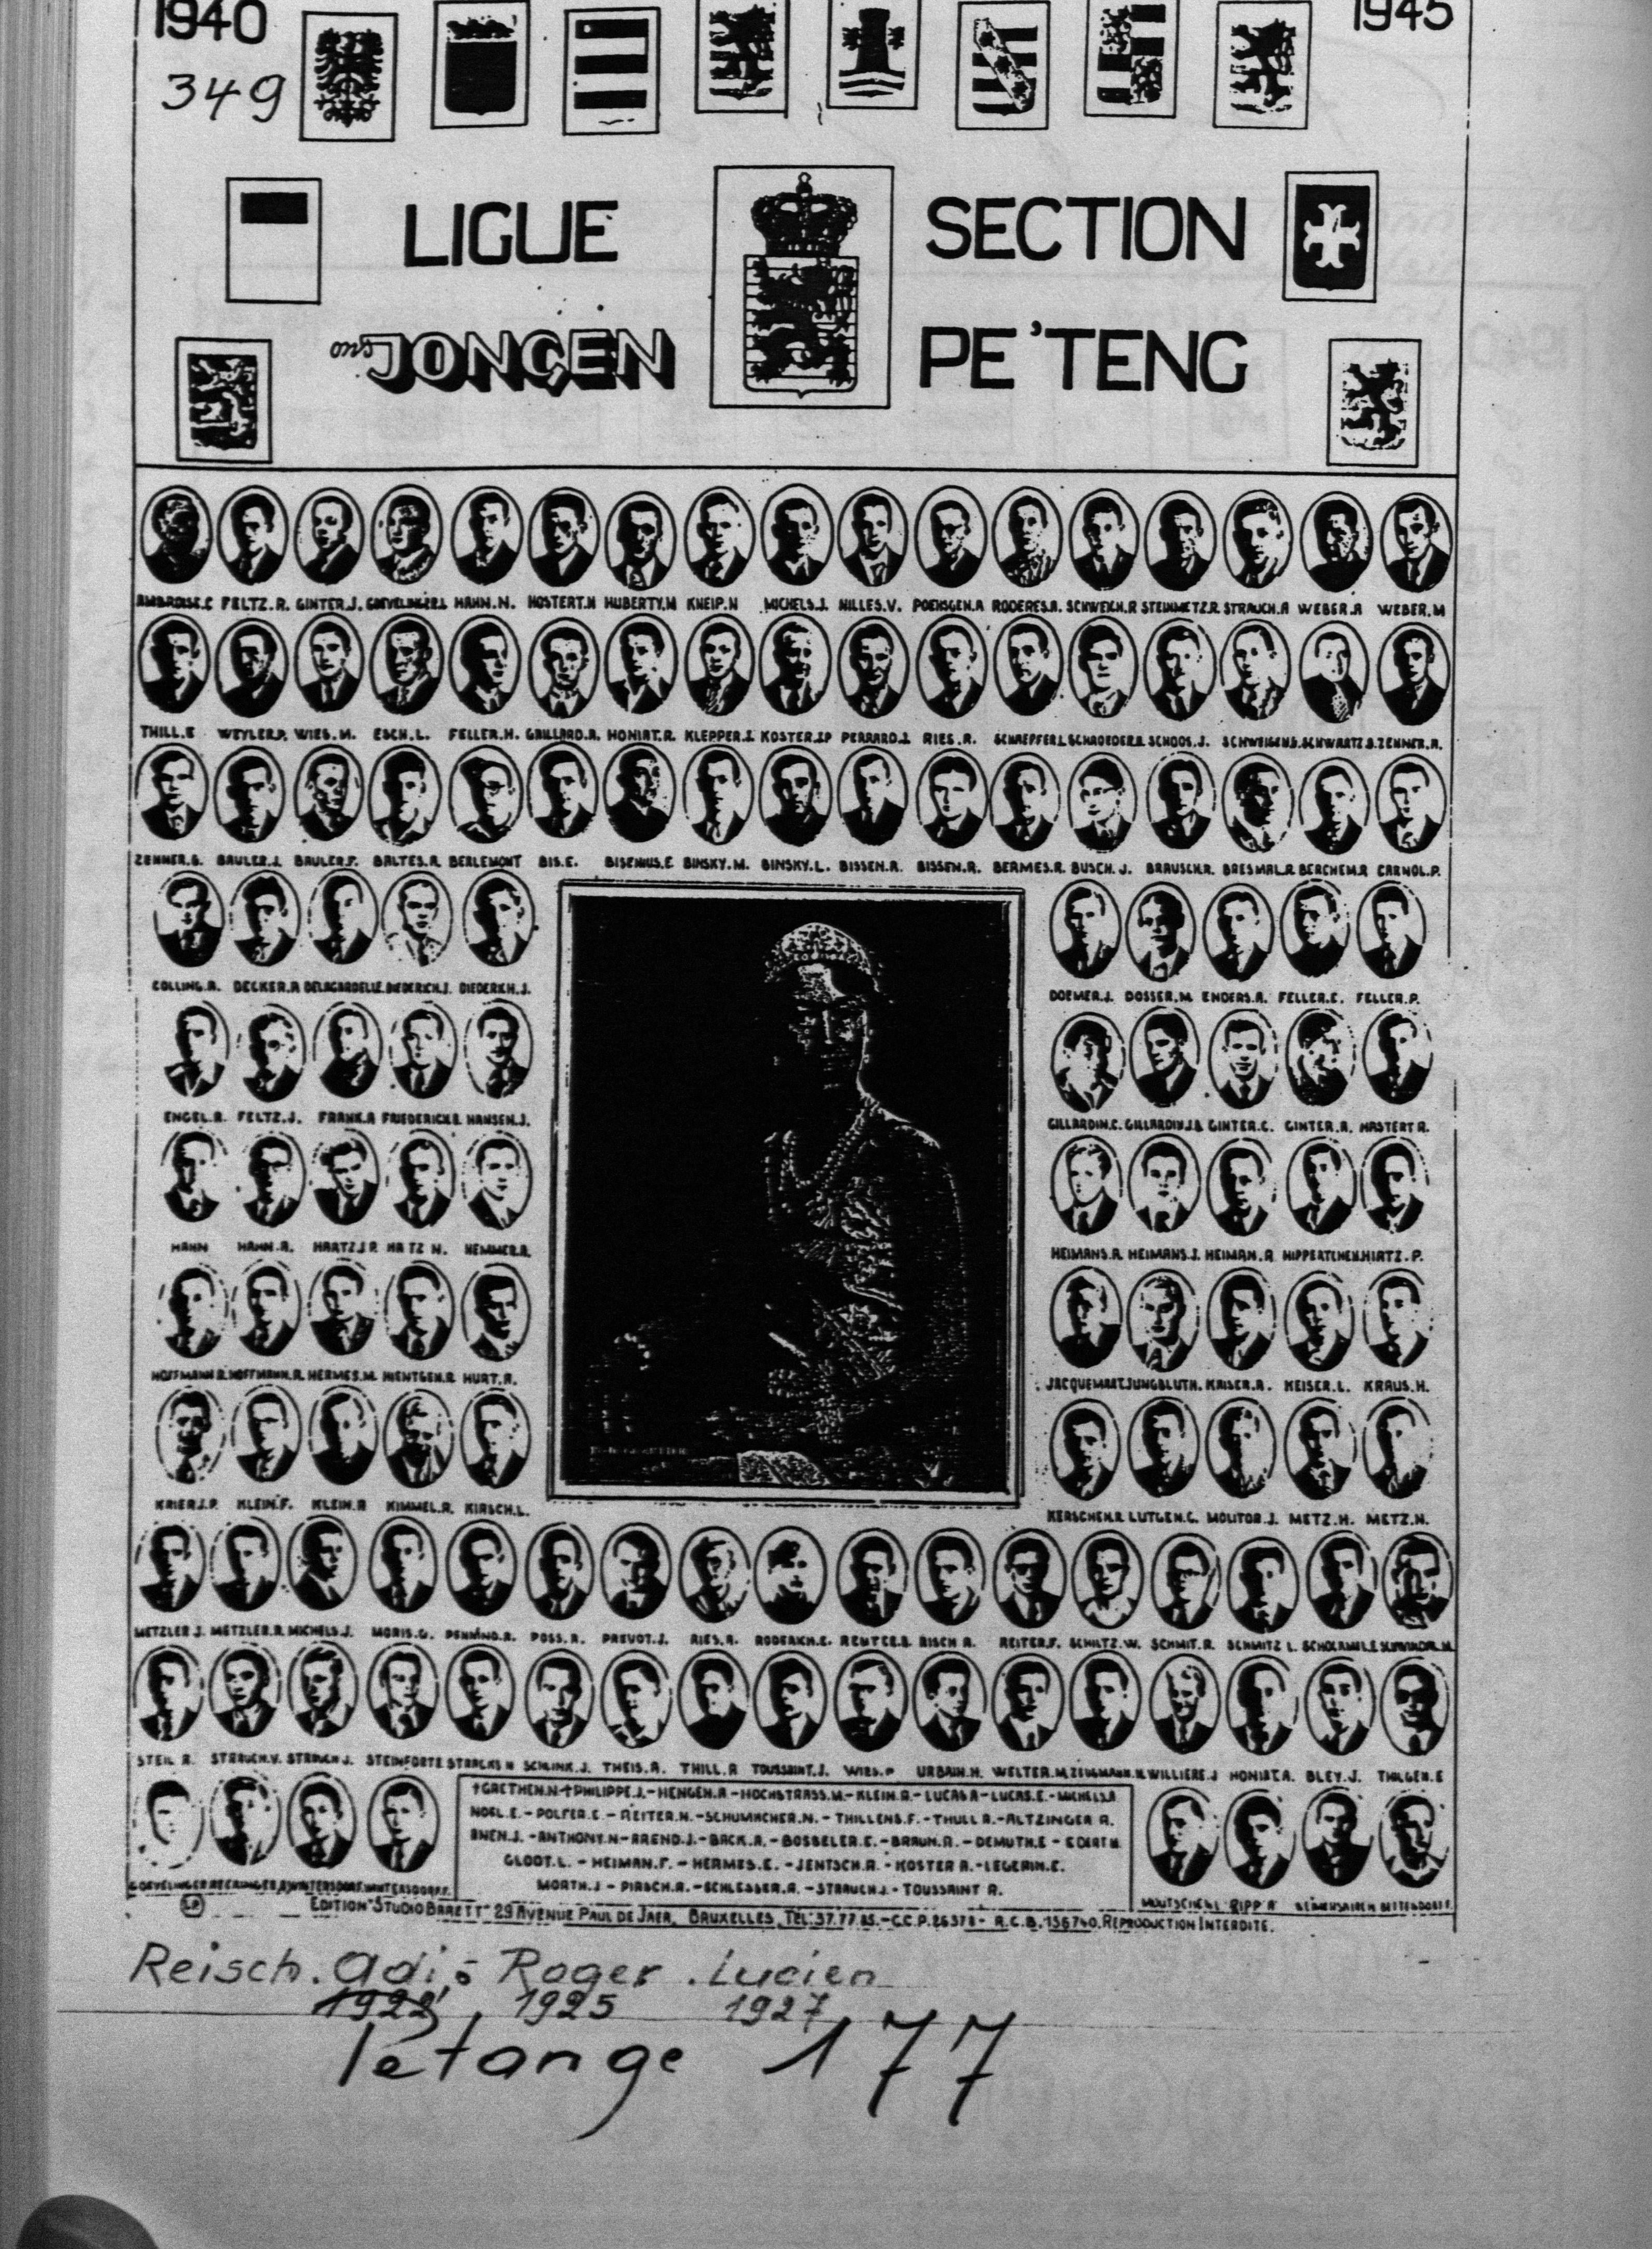 1940 1945
349
LIGUE SECTION
ons JONGEN PE'TENG
AMBROISE.C FELTZ.R. GINTER.J. GOEVELINGER.L HAHN.N. HOSTERT.N HUBERTY.M KNEIP.N MICHELS.J. NILLES.V. POENSGEN.A RODERES.A. SCHWEICH.R STEINMETZ.R. STRAUCH.A WEBER.A WEBER.M
THILL.E WEYLER.P. WIES.M. ESCH.L. FELLER.H. GAILLARD.A. HONIAT.R. KLEPPER.J. KOSTER.J.P PERRARD.J. RIES.R. SCHAEFFER.L SCHROEDER.R SCHOOS.J. SCHWEIGEN.J. SCHWARTZ.B. ZENNER.A.
ZENNER.G. BAULER.J. BAULER.F. BALTES.A BERLEMONT BIS.E. BISENIUS.E BINSKY.M. BINSKY.L. BISSEN.A. BISSEN.R. BERMES.R. BUSCH.J. BRAUSCH.R. BRESMAL.R BERCHEM.R CARNOL.P.
COLLING.A. DECKER.A DELAGARDELLE. DIEDERICH.J. DIEDERICH.J. DOEMER.J. DOSSER.M ENDERS.A. FELLER.E. FELLER.P.
ENGEL.R. FELTZ.J. FRANK.A FRIEDERICH.R. HANSEN.J. GILLARDIN.C. GILLARDIN.J.B GINTER.C. GINTER.A. HASTERT R.
HAHN HAHN.A. HARTZ.J P. HA TZ N. HEMMER.A. HEIMANS.A. HEIMANS.J. HEIMAN.A HIPPERTCHEN.HIRTZ.P.
HOFFMANN R. HOFFMANN.A. HERMES.M. HIENTGEN.R HURT.A. JACQUEMART. JUNGBLUTH. KAISER.A. KEISER.L. KRAUS.H.
KRIER.J.P. KLEIN.F. KLEIN.A KIMMEL.R. KIRSCH.L. KERSCHEN.R LUTGEN.C. MOLITOR.J. METZ.H. METZ.N.
METZLER J. METZLER.R. MICHELS.J. MORIS.G. PENNING.A. POSS.A. PREVOT.J. RIES.A. RODERICH.E. REUTER.B RISCH A. REITER.F. SCHILTZ.W. SCHMIT.R. SCHMITZ L.
STEIL R. STRAUCH.V. STRAUCH J. STEINFORTE STRACKS N SCHLINK.J. THEIS.A. THILL.A TOUSSAINT.J. WIES.P URBAIN.H. WELTER.M. ZEUGMANN.N. WILLIERE.J HONIAT.A. BLEY.J. THILGEN.E
†GRETHEN.N-†PHILIPPE.J.-HENGEN.A-HOCHSTRASS.M.-KLEIN.A-LUCAS A-LUCAS.E.-MICHELS.A
NOEL.E.-POLFER.E.-REITER.N.-SCHUMACHER.N.-THILLENS.F.-THULL A.-ALTZINGER A.
ANEN.J.-ANTHONY.N-AREND.J.-BACK.A.-BOSSELER.E.-BRAUN.A.-DEMUTH.E-EDERT N
GLODT.L.-HEIMAN.F.-HERMES.E.-JENTSCH.A.-KOSTER A.-LEGERIN.E.
MORTH.J-PIRSCH.A.-SCHLESSER.A.-STRAUCH.J.-TOUSSAINT A.
GOEVELINGER RECKINGER.A WINTERSDORF. WINTERSDORF.F. MOUTSCHEN.L RIPP A BETTENDORF F.
EDITION "STUDIO BARETT" 29 AVENUE PAUL DE JAER. BRUXELLES. TEL: 37.77.85.-C.C.P. 26378-R.C.B. 156740. REPRODUCTION INTERDITE.
Reisch. Adi, Roger. Lucien
1922, 1925 1927
Petange 177